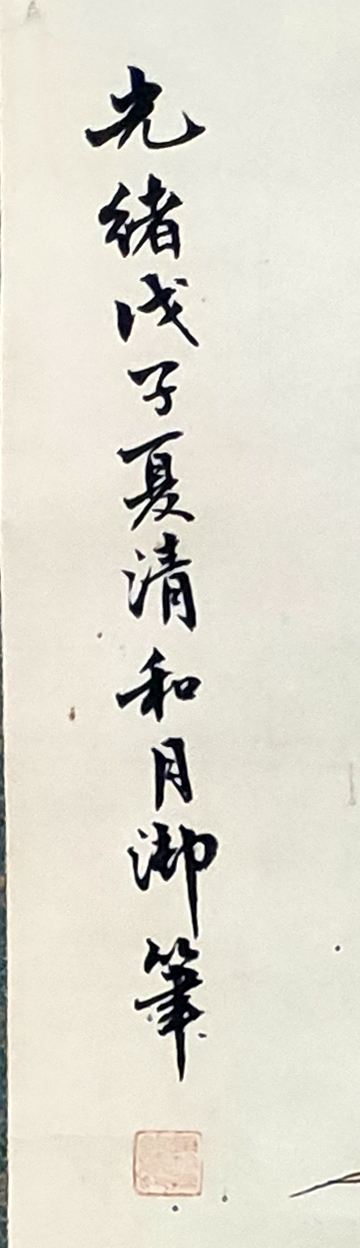 光緒戊子夏清和月御筆